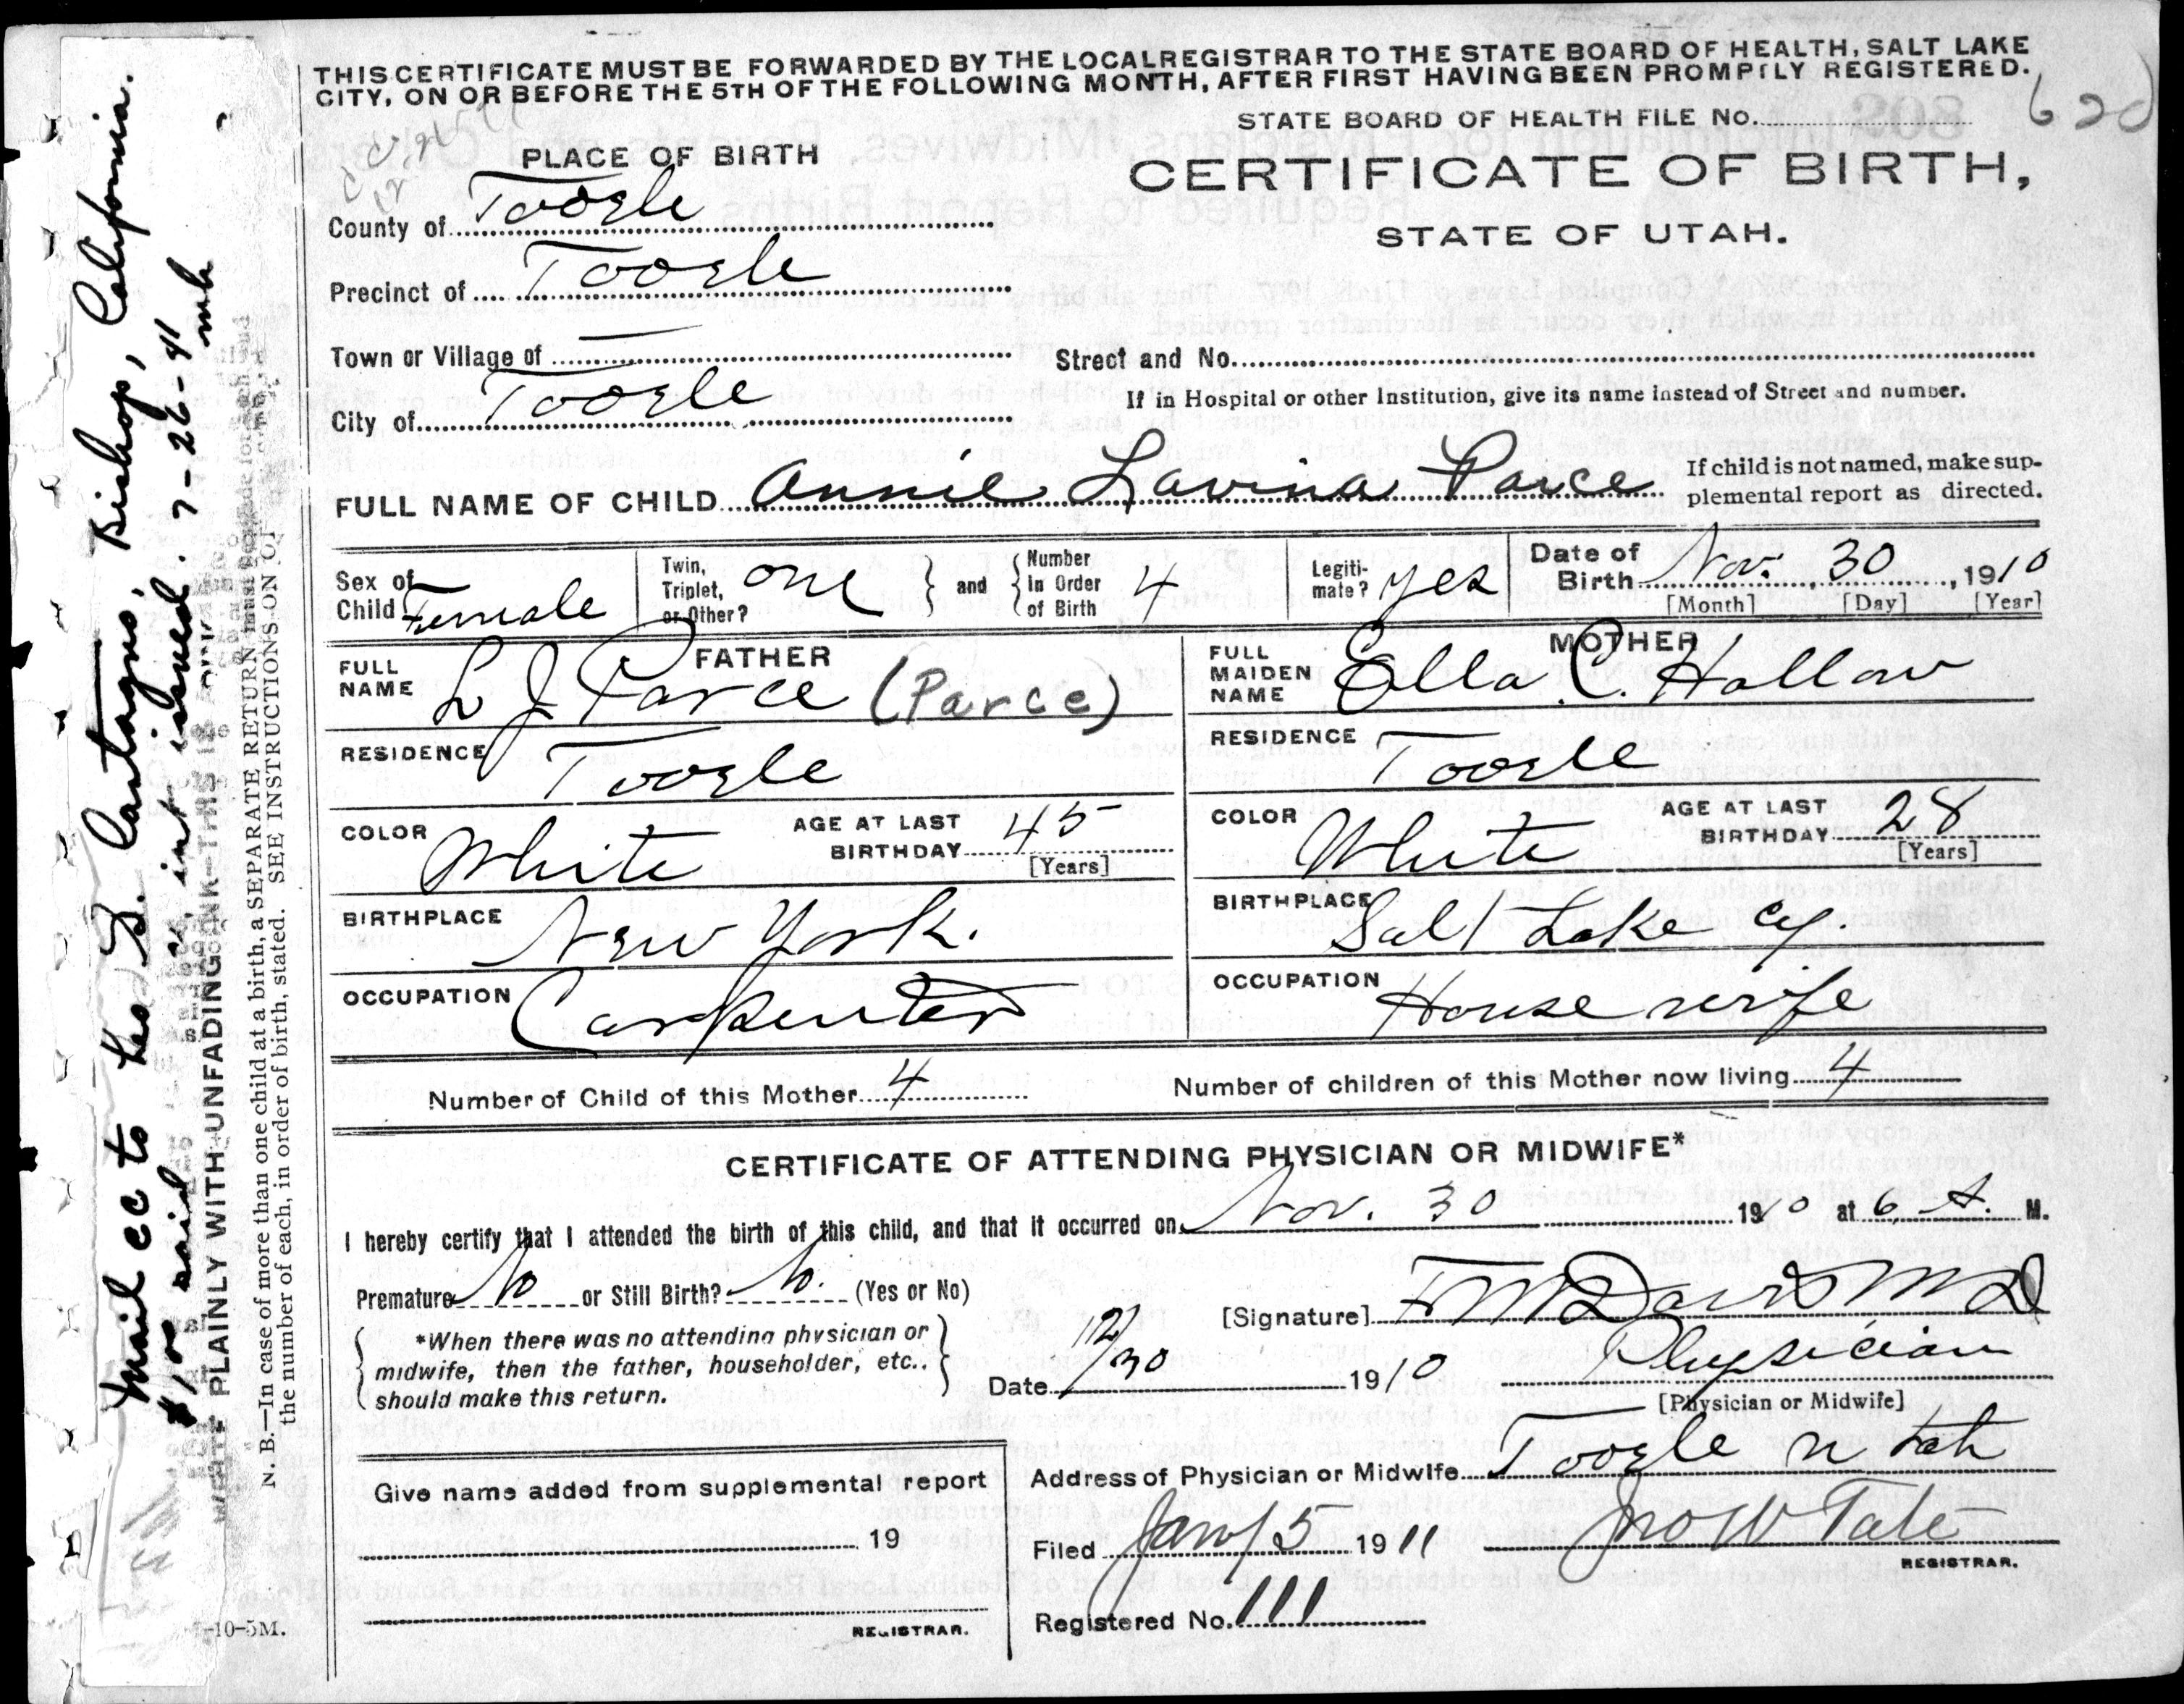 THIS CERTIFICATE MUST BE FORWARDED BY THE LOCAL REGISTRAR TO THE STATE BOARD OF HEALTH, SALT LAKE
CITY, ON OR BEFORE THE 5TH OF THE FOLLOWING MONTH, AFTER FIRST HAVING BEEN PROMPTLY REGISTERED.
STATE BOARD OF HEALTH FILE NO. 620
PLACE OF BIRTH
CERTIFICATE OF BIRTH,
STATE OF UTAH.
County of Tooele
Precinct of Tooele
Town or Village of —
Street and No.
City of Tooele
If in Hospital or other Institution, give its name instead of Street and number.
FULL NAME OF CHILD Annie Lavina Parce
If child is not named, make sup-
plemental report as directed.
Sex of Child Female
Twin, Triplet, or Other? one
and
Number in Order of Birth 4
Legiti-mate? yes
Date of Birth Nov. 30, 1910
[Month] [Day] [Year]
FATHER
MOTHER
FULL NAME L J Parce (Parce)
FULL MAIDEN NAME Ella C. Hollow
RESIDENCE Tooele
RESIDENCE Tooele
COLOR White AGE AT LAST BIRTHDAY 45 [Years]
COLOR White AGE AT LAST BIRTHDAY 28 [Years]
BIRTHPLACE New York.
BIRTHPLACE Salt Lake Cy.
OCCUPATION Carpenter
OCCUPATION House wife
Number of Child of this Mother 4
Number of children of this Mother now living 4
CERTIFICATE OF ATTENDING PHYSICIAN OR MIDWIFE*
I hereby certify that I attended the birth of this child, and that it occurred on Nov. 30 1910 at 6 A. M.
Premature No or Still Birth? No. (Yes or No)
[Signature] F M Davis M D
*When there was no attending physician or
midwife, then the father, householder, etc.,
should make this return.
Date 12/30 1910
Physician
[Physician or Midwife]
Give name added from supplemental report
Address of Physician or Midwife Tooele Utah
19
Filed Jan/5 1911
Jno W Tate
REGISTRAR.
Registered No. 111
REGISTRAR.
-10-5M.
Mail cc to Leo D. Castagno, Bishop, California.
$1.00 paid. cc int issued. 7-26-41
mb
PLAINLY WITH UNFADING INK—THIS IS A
N. B.—In case of more than one child at a birth, a SEPARATE RETURN must be made for each, and
the number of each, in order of birth, stated. SEE INSTRUCTIONS ON